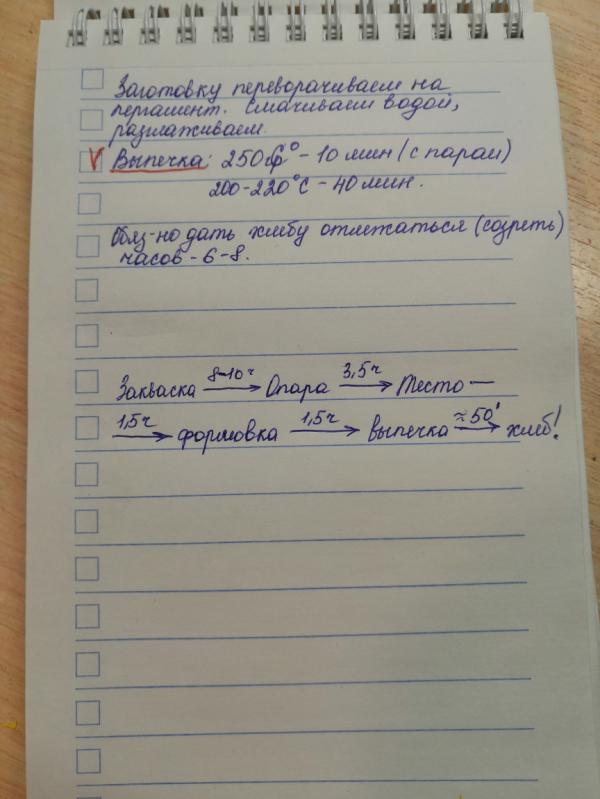 Заготовку переворачиваем на
пергамент. Смачиваем водой,
разглаживаем.
Выпечка: 250° - 10 мин (с паром)
200-220°С - 40 мин.
Обяз-но дать хлебу отлежаться (созреть)
часов - 6-8.
Закваска 8-10ч → Опара 3,5ч → Тесто —
1,5ч → формовка 1,5ч → выпечка ≈50' → хлеб!